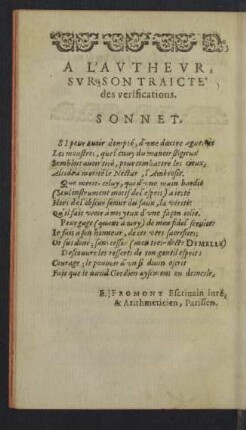 A L'AVTHEVR,
SVR SON TRAICTE'
des verifications.
SONNET.
SI pour auoir dompté, d'vne dextre aguerrie
Les monstres, que l'
Semblent auoir pour combattre les cieux,
Alcide a merité le Nectar, l'Ambrosie.
Que merite celuy, qui d'vne main hardie
(Seul instrument motif des espris) a tenté
Hors de l'obscur seiour du faux, la verité
Qu'il fait voir à nos yeux d'vne façon iolie.
Pour gage (quant à moy) de mon fidel seruice
Ie fais à son honneur, de ces vers sacrifice;
Or sus donc, sans cesse (mon tres-docte DYMELLE)
Descouure les ressorts de ton gentil esprit:
Courage, le pouuoir d'vn si diuin escrit
Fais que le nœud Gordien aysement on demesle.
E. FROMONT Escriuain iuré,
& Arithmeticien, Parisien.